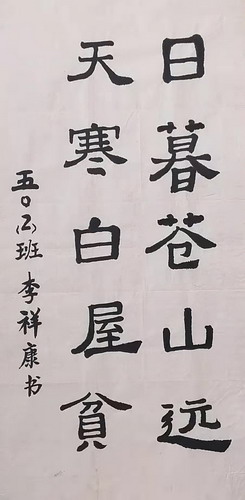 日暮苍山远
天寒白屋贫
五〇二班李祥康书